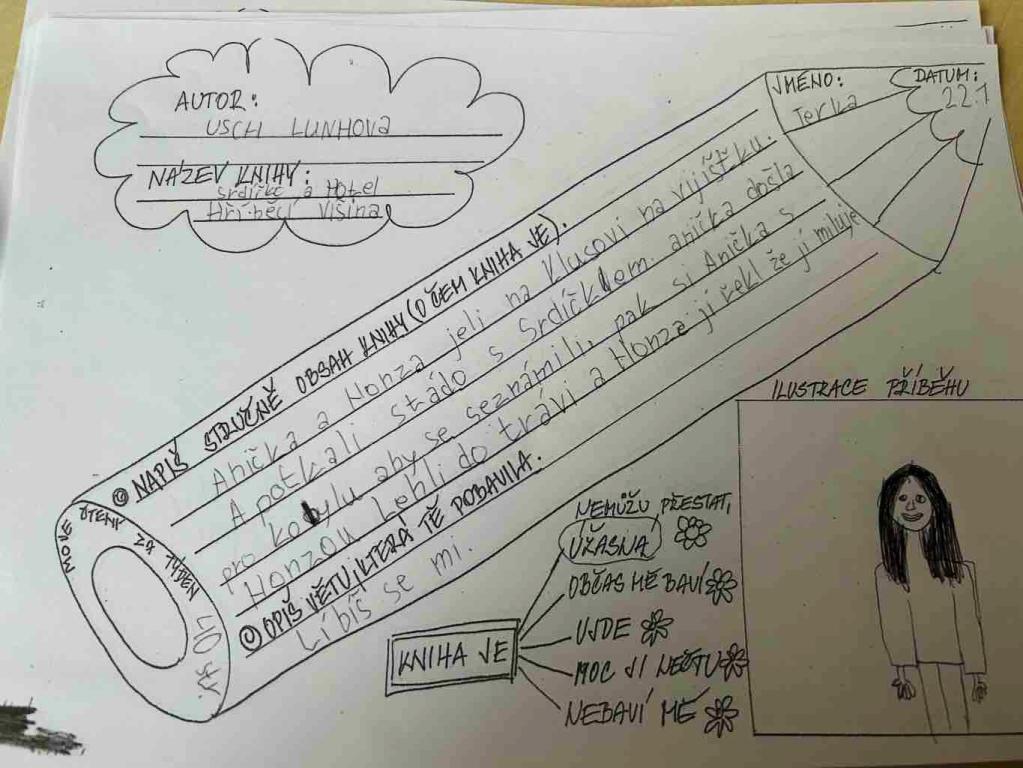 AUTOR:
USCH LUHNOVA
NÁZEV KNIHY:
Srdíčko a Hotel
Hříběcí Višina
JMÉNO:
Terka
DATUM:
22.1
NAPIŠ STRUČNĚ OBSAH KNIHY (O ČEM KNIHA JE).
Anička a Honza jeli na Klusovi na vijíšťku.
A potkali stádo s Srdíčkem. anička došla
pro kobylu aby se seznámili, pak si Anička s
Honzou Lehli do trávi a Honza jí řekl že jí miluje
OPIŠ VĚTU, KTERÁ TĚ POBAVILA.
Líbíš se mi.
MOJE ČTENÍ ZA TÝDEN
ILUSTRACE PŘÍBĚHU
KNIHA JE
NEMŮŽU PŘESTAT,
ÚŽASNÁ
OBČAS MĚ BAVÍ
UJDE
MOC JI NEČTU
NEBAVÍ MĚ